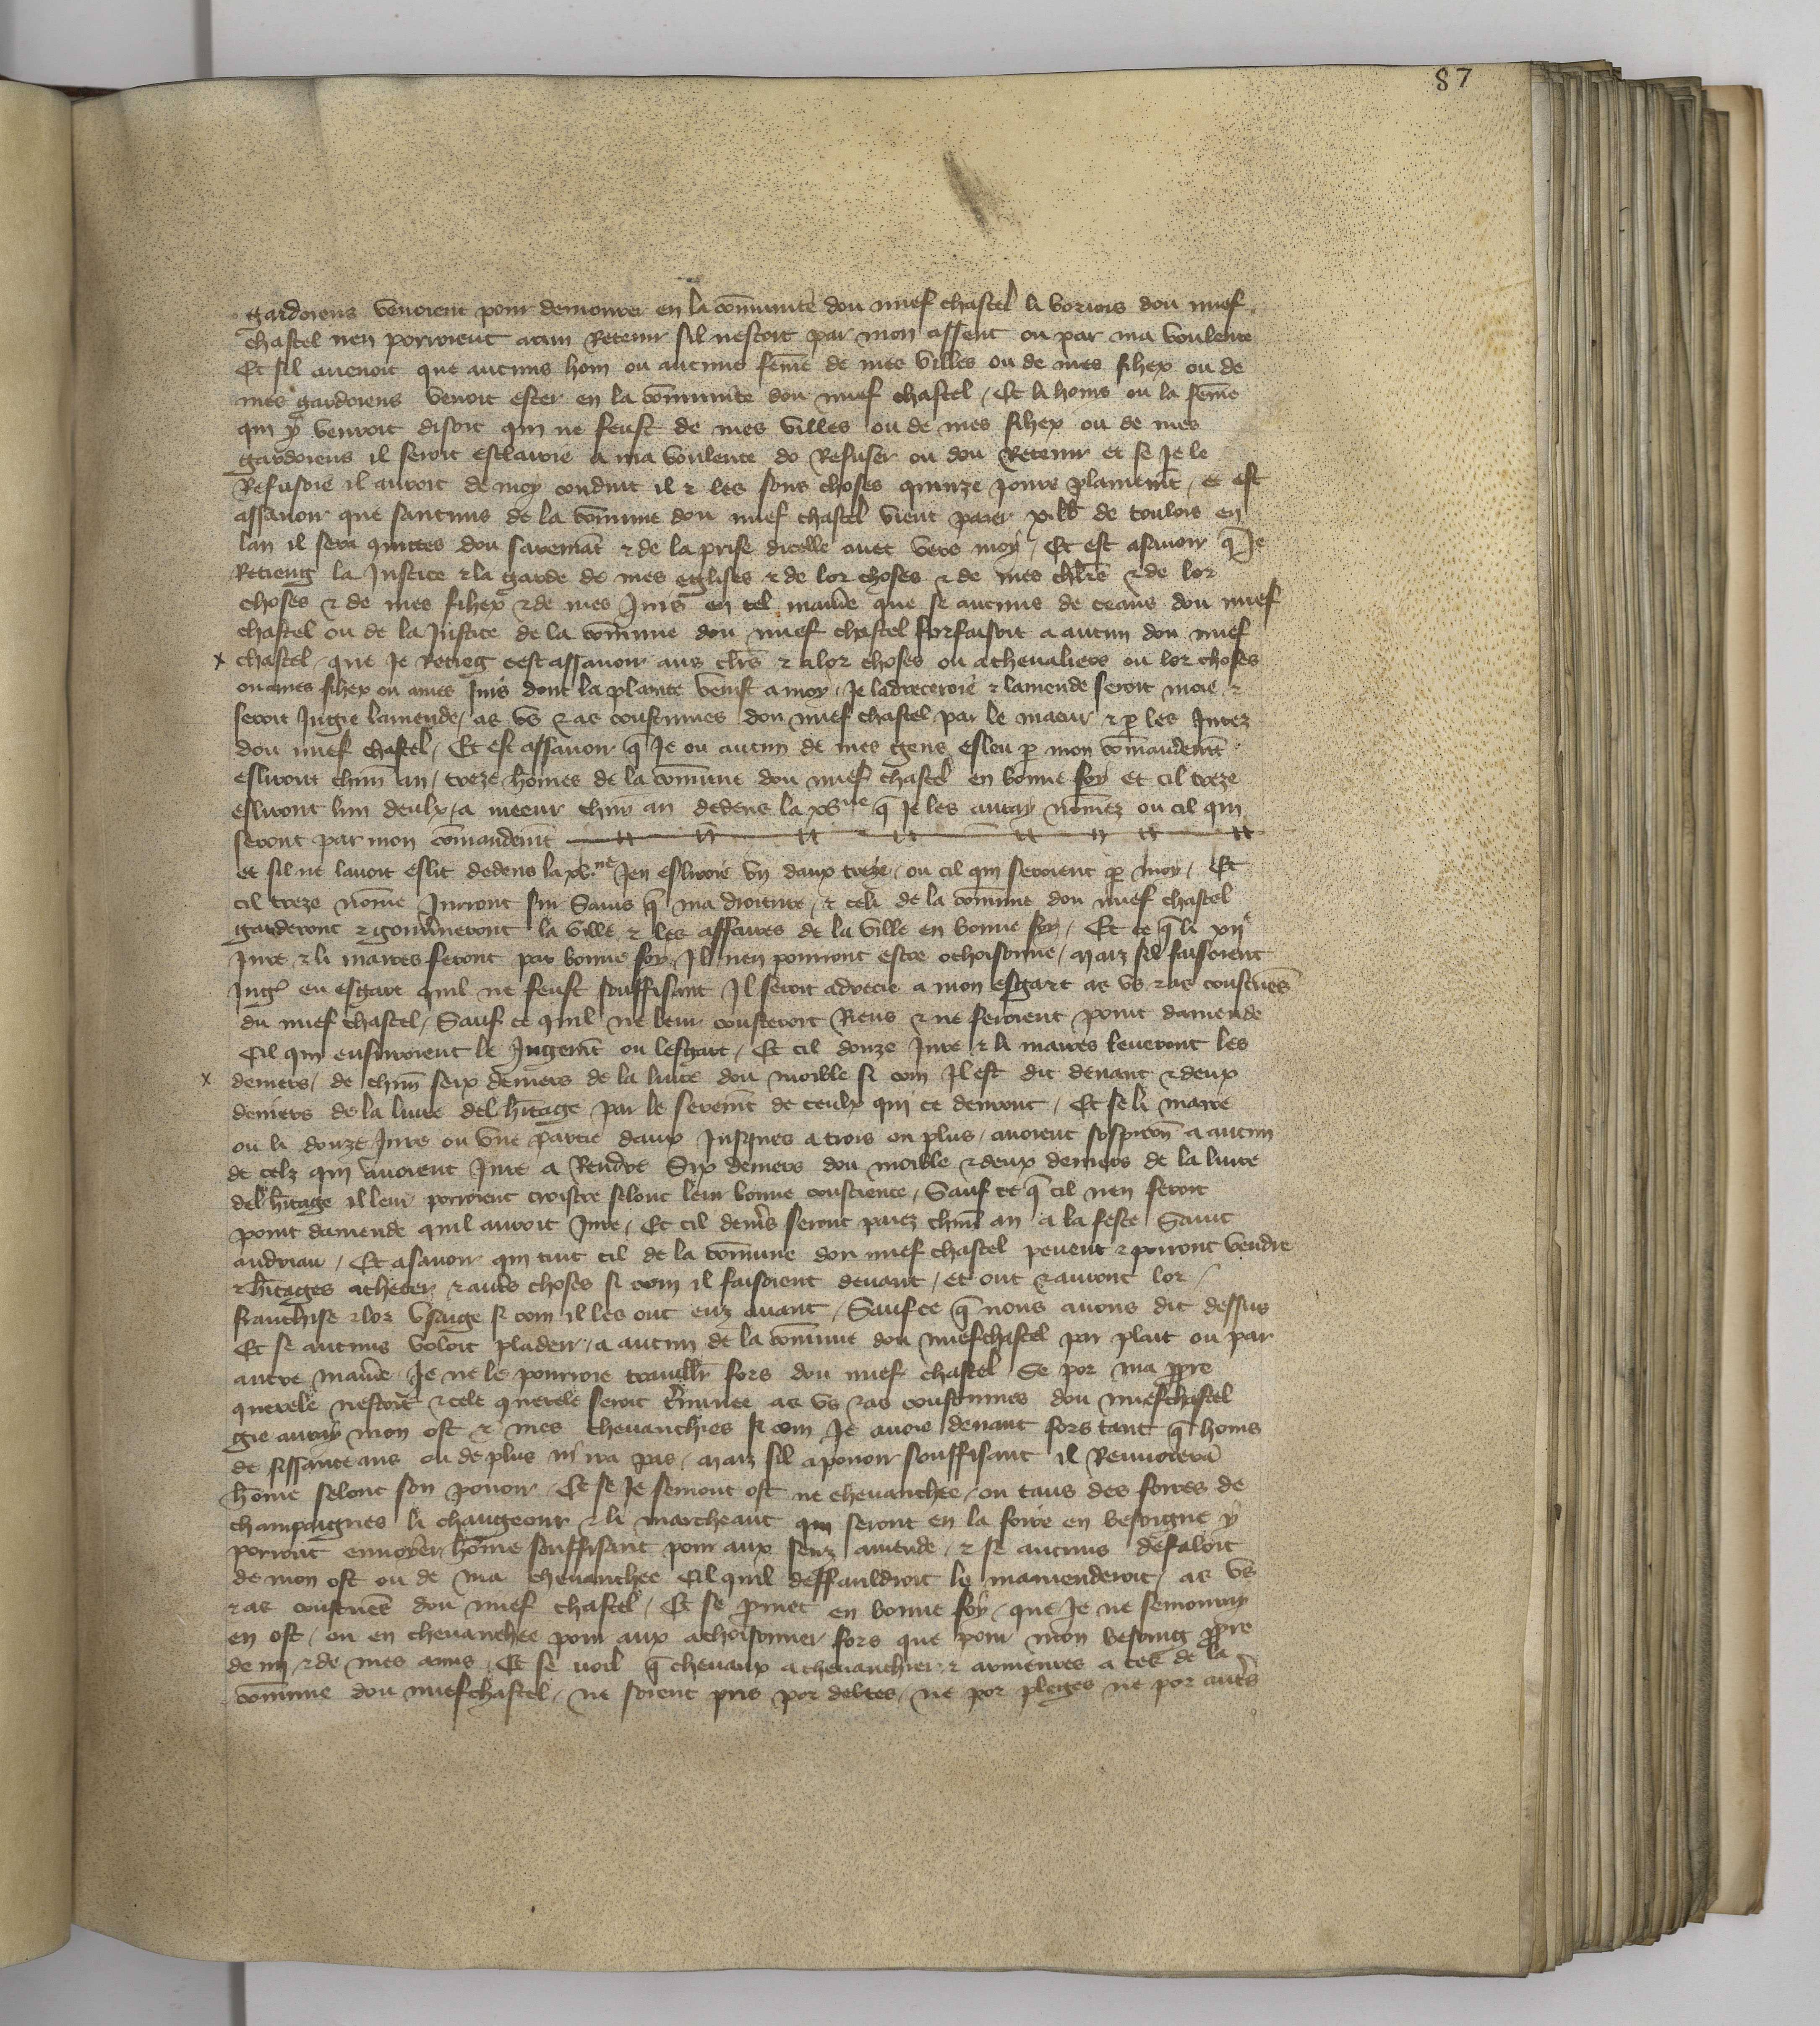 87
gardoiens venoient pour demourer en la cõmunite dou nuef chastel li boriois dou nuef
chastel nen porroient aucun Retenir sil nestoit par mon assent ou par ma voulente
Et sil auenoit que aucuns hom ou aucune feme de mes villes ou de mes fihex ou de
mes gardoiens venoit ester en la cõmunite dou nuef chastel / Et li homs ou la feme
qui y venroit disoit qui ne feust de mes villes ou de mes fihex ou de mes
gardoiens il seroit esclairie a ma voulente do Refuser ou dou Retenir et se Je le
Refusoie il auroit de moy conduit il & les sous choses quinze jours plainemt / et est
assauoir que saucuns de la cõmune dou nuef chastel vient paier xx lb de toulois en
lan il sera quittes dou sairemãt & de la prise dicelle auec vers moy / Et est asauoir q̃ Je
Retieng la Justice & la garde de mes eglises & de lor choses & de mes chlrs & de lor
choses & de mes fihex & de mes Juis en tel maniere que se aucuns de ceaus dou nuef
chastel ou de la Justice de la cõmune dou nuef chastel forfaisoit a aucun dou nuef
x chastel / que Je Retieg cest assauoir aus clrs & a lor choses ou a cheualiers ou lor choses
ou a mes fihex ou a mes Juis dont la plainte venist a moy / Je ladreceroie & lamende seroit moie &
seroit Jugie lamende / as vs & as coustumes dou nuef chastel par le maeur & p les Jurez
dou nuef chastel / Et est assauoir q̃ Je ou aucun de mes gens esleu p mon cõmandemt
esliront chun an / treze hõmes de la cõmune dou nuef chastel en bonne foy et cil treze
esliront lun deulx / a meeur chun an dedens la xvne q̃ Je les auray nõmez ou cil qui
seront par mon cõmandemt
et sil ne lauoit eslit dedens la xv.ne Jen esliroie vn daux treze / ou cil qui seroient p moy / Et
cil treze nõme Jurront sur Sains q̃ ma droiture / & celi de la cõmune dou nuef chastel
garderont & gouũneront la ville & les affaires de la ville en bonne foy / Et ce q̃ li xije
Jure & li maires feront par bonne foy Il nen pourront estre ochoisonne / maiz sil faisoient
Jugt en esgart quil ne feust souffisant Il seroit adrecie a mon esgart as vs & as coustues
du nuef chastel / Sauf ce quil ne leur cousteroit Riens & ne feroient point damende
Cil qui ensuiroient le Jugemt ou lesgart / Et cil douze Jure & li maires leueront les
x deniers / de chun seix deniers de la liure dou moible si com Il est dit deuant & deux
deniers de la liure del hitage par le seremt de ceulx qui ce deuront / Et se li maire
ou li douze Jures ou vne partie daux Jusques a trois ou plus / auoient sospicon a aucun
de celz qui auoient Jure a Rendre Six deniers dou moible & deux deniers de la liure
del hitage il leur porroient croistre selonc leur bonne conscience / Sauf ce q̃ cil nen feroit
point damende quil auroit Jure / Et cil denrs seront paiez chun an a la feste Saint
andrieu / Et asauoir qui tuit cil de la cõmune dou nuef chastel peuent & porront vendre
& hitages acheter & autrs choses si com il faisoient deuant / et ont & auront lor
franchise & lor vsaige si com il les ont euz auant / Sauf ce q̃ nous auons dit dessus
Et se aucuns voloit pladeir / a aucun de la cõmune dou nuefchastel par plait ou par
autre maniere Je ne le pourroie trauillr fors dou nuef chastel Se por ma ppre
querele nestoit & cele querele seroit tminee as vs & as coustumes dou nuefchastel
gie auray mon ost & mes cheuauchies si com Je auoie deuant fors tant q̃ homs
de sissante ans ou de plus ni ira pas / maiz sil a pouoir souffisant il Renuoiera
hõme selonc son pouoir / Et se Je semont ost ne cheuauchee / ou tans des foires de
champaignes li changeour & li marcheant qui seront en la foire en besoigne y
porront enuoyer hõme souffisant pour aux senz amende / & se aucuns defaloit
de mon ost ou de ma cheuauchee Cil quil deffauldroit le mamenderoit / as vs
& as coustues dou nuef chastel / Et se pmet en bonne foy / que Je ne semonray
en ost / ou en cheuauchee pour aux achoisonner fors que pour mon besoing ppre
de mi / & de mes amis / Et se voil q̃ cheuaux a cheuauchier & armeures a ces de la
cõmune dou nuefchastel / ne soient pris por debtes / ne por pleges ne por autrs